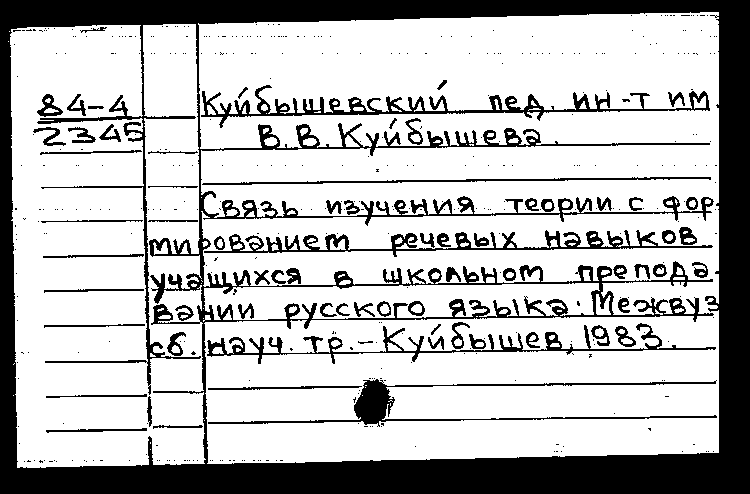 84-4 Куйбышевский пед. ин-т им.
2345 В.В. Куйбышева.
Связь изучения теории с фор-
мированием речевых навыков
учащихся в школьном препода-
вании русского языка: Межвуз
сб. науч. тр. - Куйбышев, 1983.